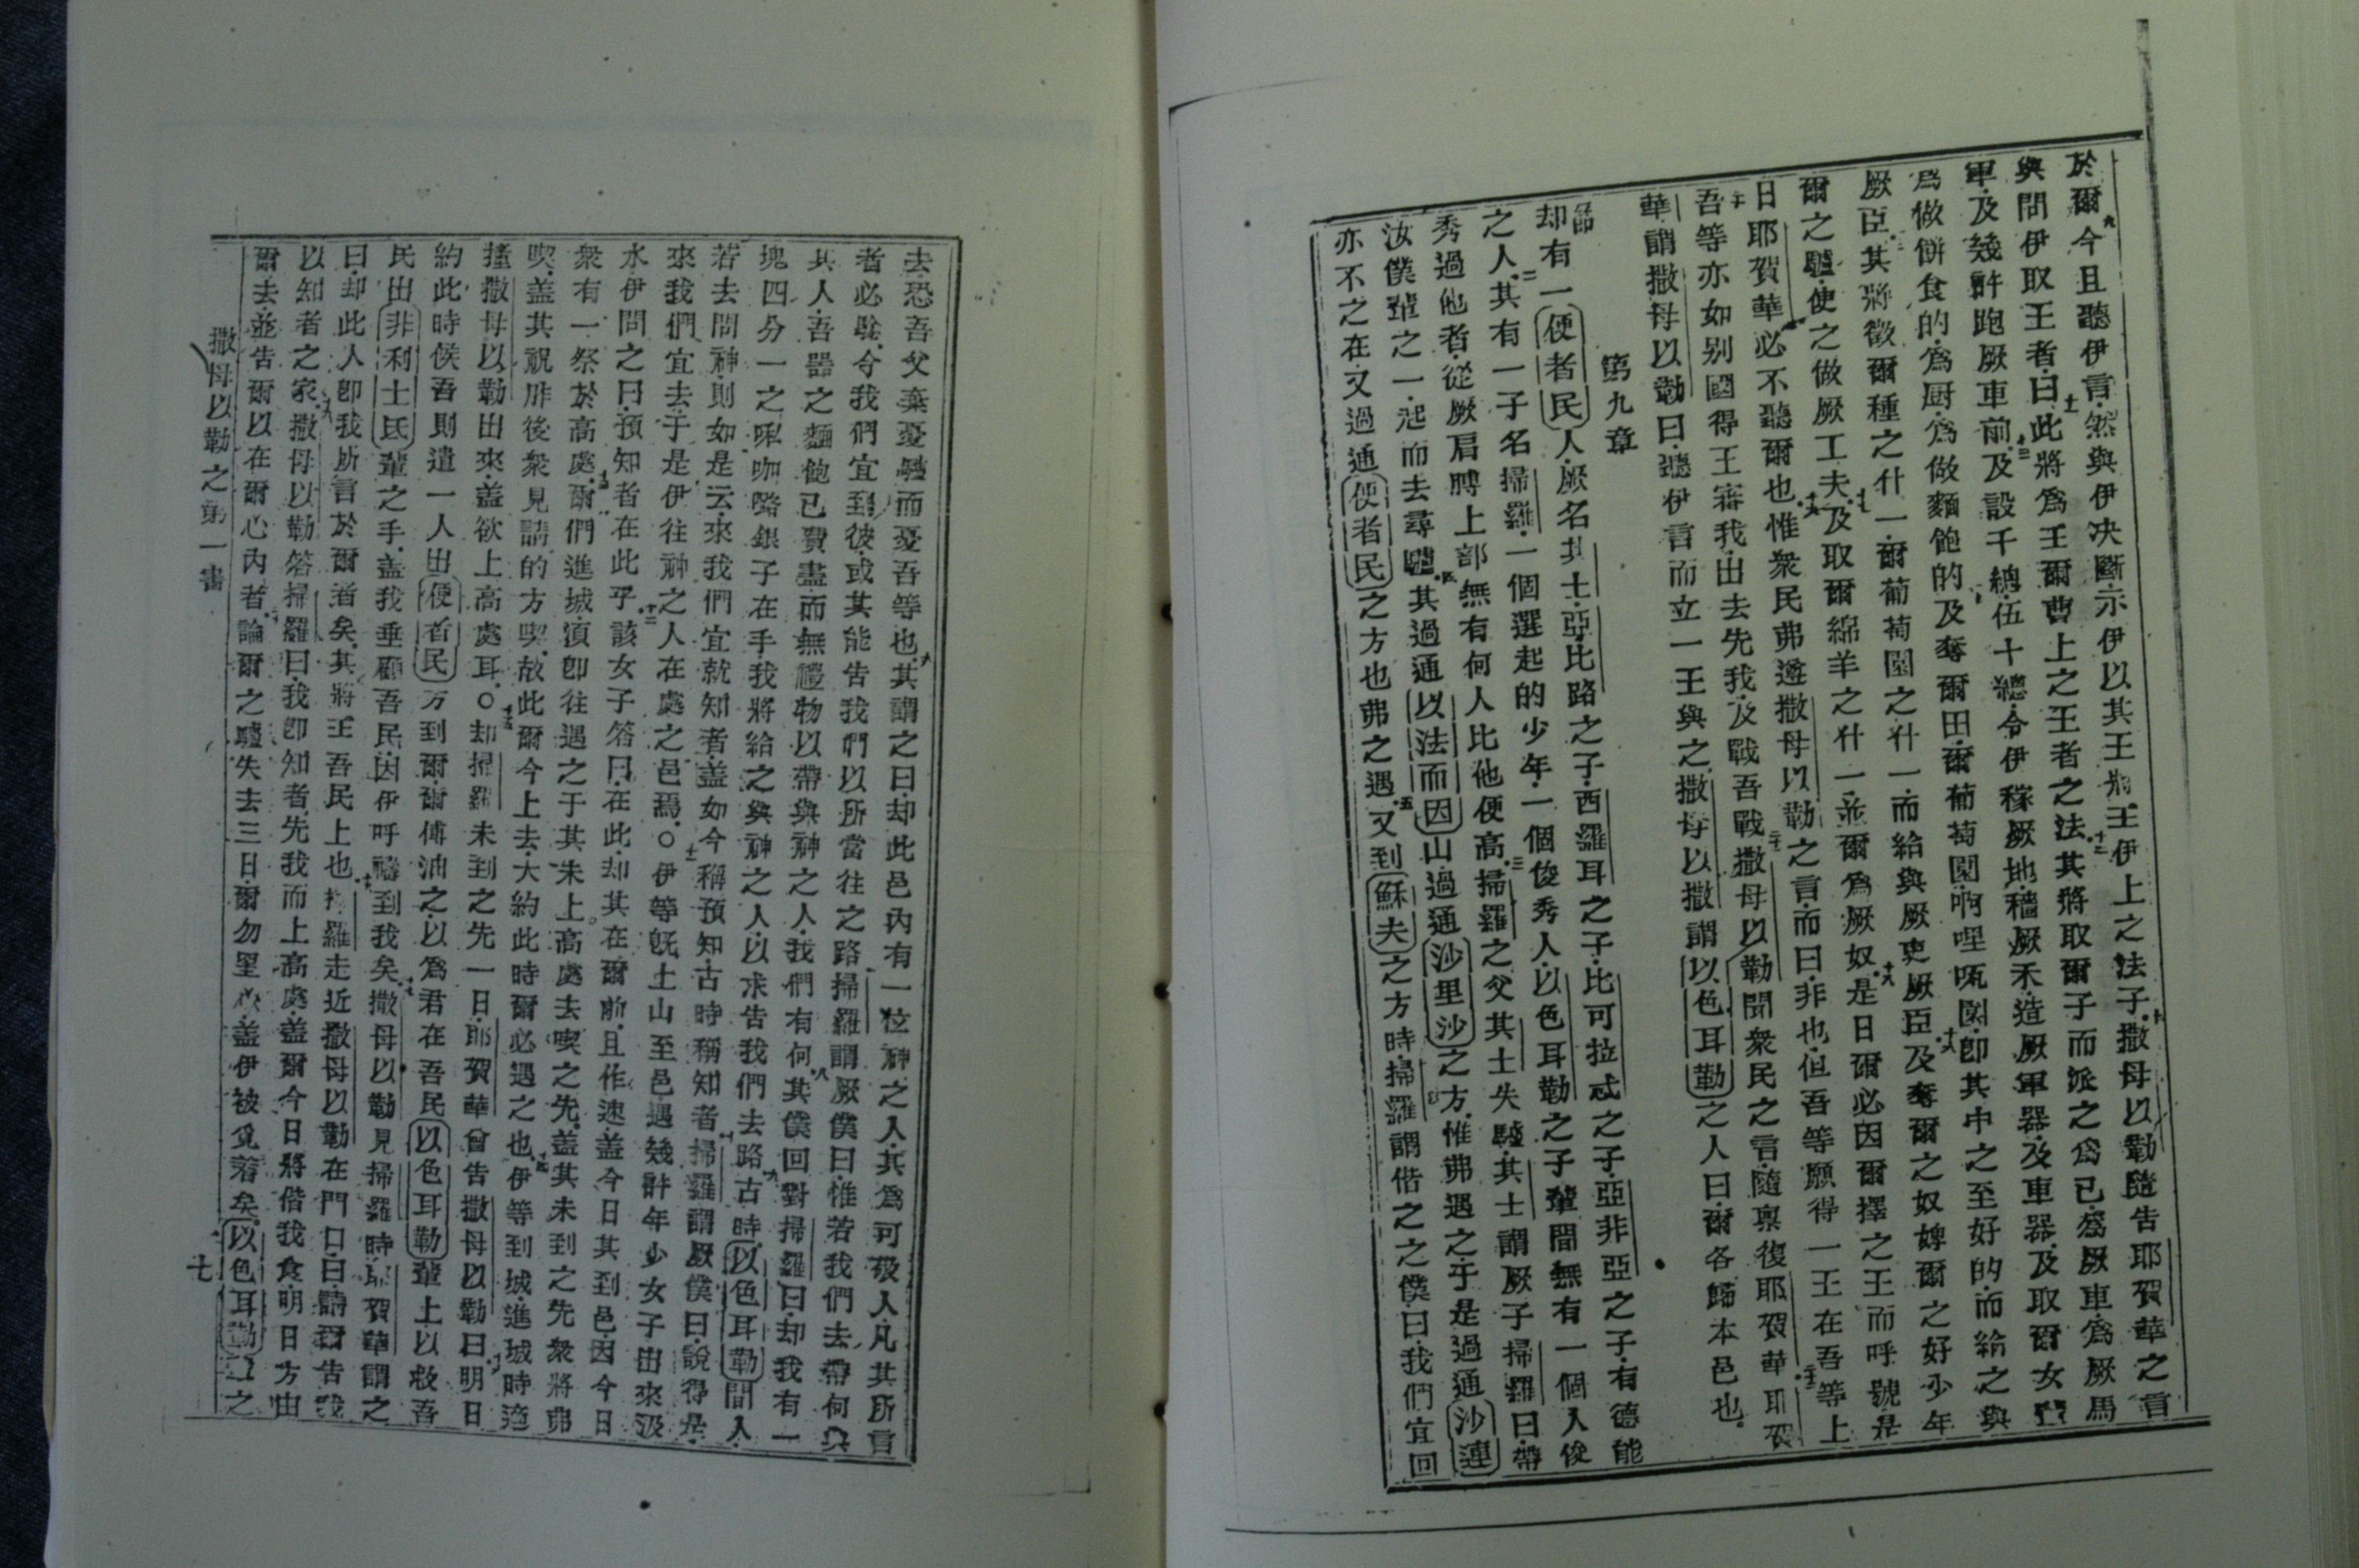 於爾九今且聽伊言然與伊決斷示伊以其王將王伊上之法子十撒母以勒隨告耶賀華之言
與問伊取王者十一曰此將為王爾曹上之王者之法其將取爾子而派之為己為厥車為厥馬
軍及幾許跑厥車前十二及設千總伍十總令伊稼厥地穡厥禾造厥軍器及車器十三及取爾女
為做餅食的為厨為做麵飽的十四及奪爾田爾葡萄園啊哩㼈園即其中之至好的而給之與
厥臣十五其將徵爾種之什一爾葡萄園之什一而給與厥吏厥臣十六及奪爾之奴婢爾之好少年
爾之驢使之做厥工夫十七及取爾綿羊之什一並爾為厥奴十八是日爾必因爾擇之王而呼號是
日耶賀華必不聽爾也十九惟衆民弗遵撒母以勒之言而曰非也但吾等願得一王在吾等上
二十吾等亦如别國得王審我出去先我及戰吾戰二十一撒母以勒聞衆民之言隨禀復耶賀華二十二耶賀
華謂撒母以勒曰聽伊言而立一王與之撒母以撒謂以色耳勒之人曰爾各歸本邑也
第九章
一節却有一便者民人厥名其士亞比路之子西羅耳之子比可拉忒之子亞非亞之子有德能
之人二其有一子名掃羅一個選起的少年一個俊秀人以色耳勒之子輩間無有一個人俊
秀過他者從厥肩膊上部無有何人比他便高三掃羅之父其士失驢其士謂厥子掃羅曰帶
汝僕輩之一起而去尋驢四其過通以法而因山過通沙里沙之方惟弗遇之于是過通沙連
亦不之在又過通便者民之方也弗之遇五又到蘇夫之方時掃羅謂偕之之僕曰我們宜回
去恐吾父棄憂驢而憂吾等也六其謂之曰却此邑內有一位神之人其為可敬人凡其所言
者必驗今我們宜到彼或其能告我們以所當往之路七掃羅謂厥僕曰惟若我們去帶何與
其人吾器之麵飽已費盡而無禮物以帶與神之人我們有何八其僕回對掃羅曰却我有一
塊四分一之㖿咖嚕銀子在手我將給之與神之人以求告我們去路九古時以色耳勒間人
若去問神則如是云來我們宜就知者蓋如今稱預知古時稱知者十掃羅謂厥僕曰說得是
來我們宜去于是伊往神之人在處之邑焉○十一伊等旣上山至邑遇幾許年少女子出來汲
水伊問之曰預知者在此乎十二該女子答曰在此却其在爾前且作速蓋今日其到邑因今日
衆有一祭於高處十三爾們進城須即往遇之于其未上高處去喫之先蓋其未到之先衆將弗
喫蓋其祝胙後衆見請的方喫故此爾今上去大約此時爾必遇之也十四伊等到城進城時適
撞撒母以勒出來蓋欲上高處耳○十五却掃羅未到之先一日耶賀華曾告撒母以勒曰十六明日
約此時侯吾則遣一人出便者民方到爾爾傅油之以為君在吾民以色耳勒輩上以救吾
民出非利士氏輩之手蓋我垂顧吾民因伊呼禱到我矣十七撒母以勒見掃羅時耶賀華謂之
曰却此人即我所言於爾者矣其將王吾民上也十八掃羅走近撒母以勒在門口曰請爾告我
以知者之家十九撒母以勒答掃羅曰我即知者先我而上高處蓋爾今日將偕我食明日方由
爾去並告爾以在爾心內者二十論爾之驢失去三日爾勿罣心蓋伊被覓着矣以色耳勒之
撒母以勒之第一書
七